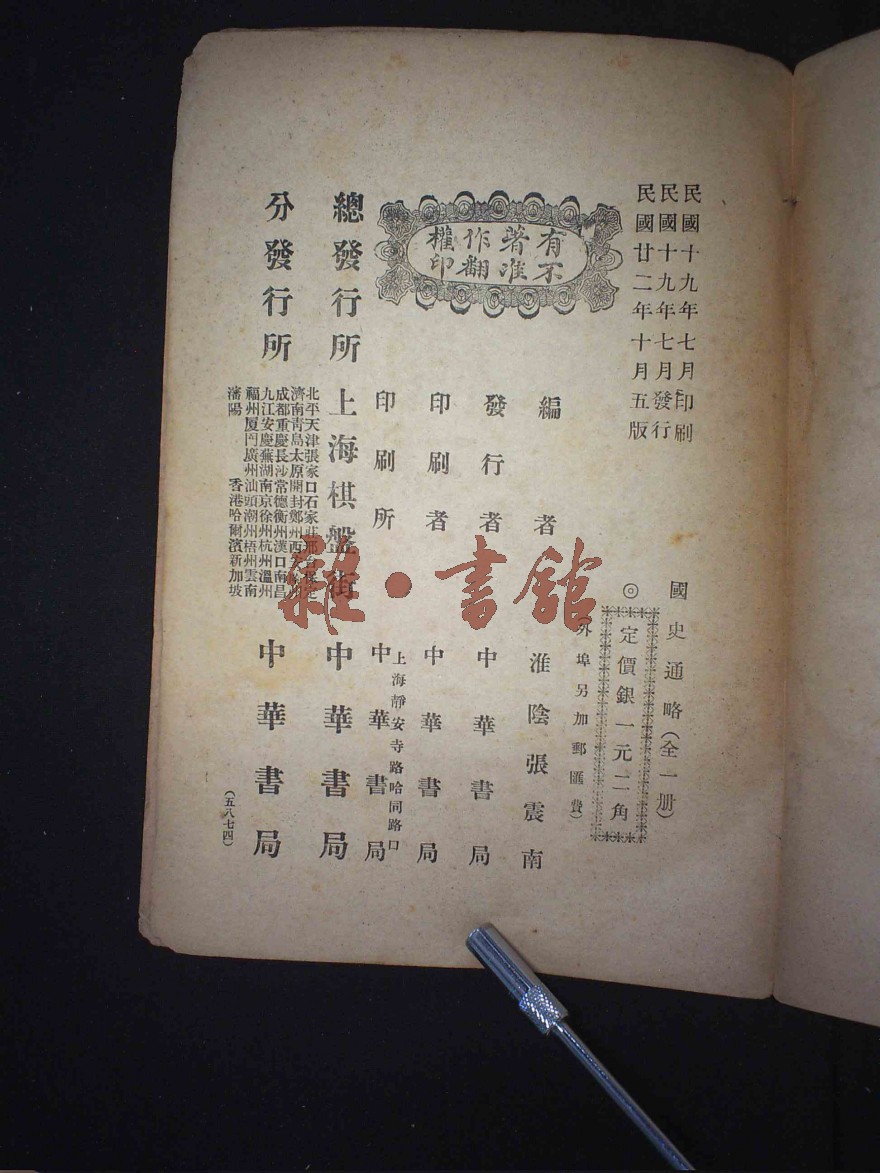 民國十九年七月印刷
民國十九年七月發行
民國廿二年十月五版
國史通略（全一册）
◎定價銀一元二角
（外埠另加郵匯費）
有著作權
不准翻印
編者 淮陰張震南
發行者 中華書局
印刷者 中華書局
上海靜安寺路哈同路口
印刷所 中華書局
總發行所 上海棋盤街 中華書局
分發行所
北平天津張家口石家莊
濟南青島太原開封鄭州西
成都重慶長沙常德衡州漢口南昌
九江安慶蕪湖南京徐州杭州溫州
福州厦門廣州汕頭潮州梧州雲南
瀋陽 香港哈爾濱新加坡
中華書局
（五八七四）
雜·書館